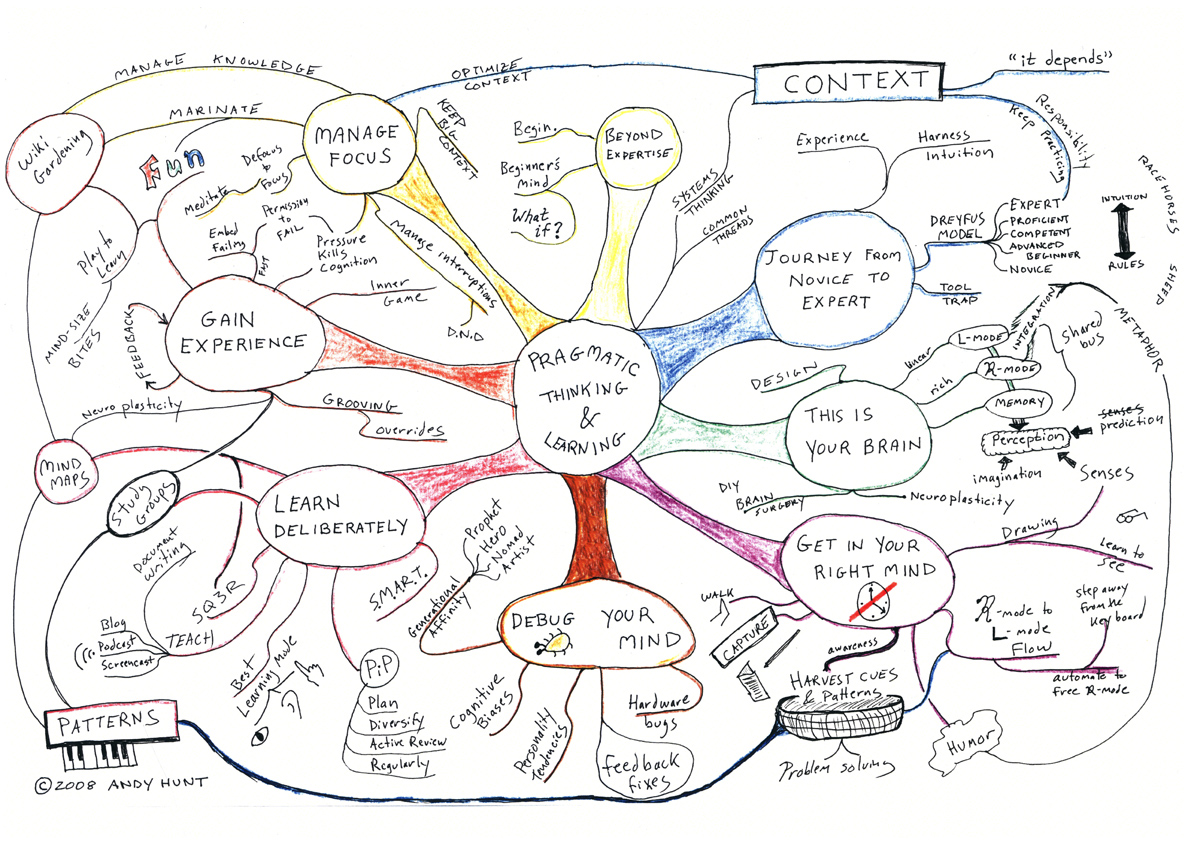 MANAGE KNOWLEDGE
MARINATE
Wiki
Gardening
Fun
MANAGE
FOCUS
OPTIMIZE
CONTEXT
KEEP
BIG
CONTEXT
Defocus
to
Focus
Meditate
Permission
to
FAIL
Embed
Failing
FAST
Pressure
Kills
Cognition
Manage interruptions
D.N.D
Play to
Learn
MIND-SIZE
BITES
BEYOND
EXPERTISE
Begin.
Beginner's
Mind
What
if?
CONTEXT
"it depends"
Responsibility
Keep Practicing
SYSTEMS
THINKING
COMMON
THREADS
Experience
Harness
Intuition
JOURNEY FROM
NOVICE TO
EXPERT
DREYFUS
MODEL
EXPERT
PROFICIENT
COMPETENT
ADVANCED
BEGINNER
NOVICE
INTUITION
RULES
RACEHORSES
SHEEP
TOOL
TRAP
GAIN
EXPERIENCE
FEEDBACK
Inner
Game
Neuro plasticity
GROOVING
overrides
PRAGMATIC
THINKING
&
LEARNING
THIS IS
YOUR BRAIN
DESIGN
linear
rich
L-MODE
R-MODE
MEMORY
INTEGRATION
Shared
bus
METAPHOR
Perception
senses
prediction
imagination
Senses
DIY
BRAIN
SURGERY
Neuroplasticity
MIND
MAPS
Study
Groups
LEARN
DELIBERATELY
Document
Writing
SQ3R
TEACH
Blog
Podcast
Screencast
Best
Learning Mode
S.M.A.R.T.
PiP
Plan
Diversify
Active Review
Regularly
DEBUG YOUR
MIND
Generational
Affinity
Prophet
Hero
Nomad
Artist
Cognitive
Biases
Personality
Tendencies
Hardware
bugs
feedback
fixes
GET IN YOUR
RIGHT MIND
Drawing
Learn to
see
R-mode to
L-mode
Flow
step away
from the
keyboard
automate to
free R-mode
WALK
CAPTURE
awareness
HARVEST CUES
& Patterns
Problem solving
Humor
PATTERNS
© 2008 ANDY HUNT